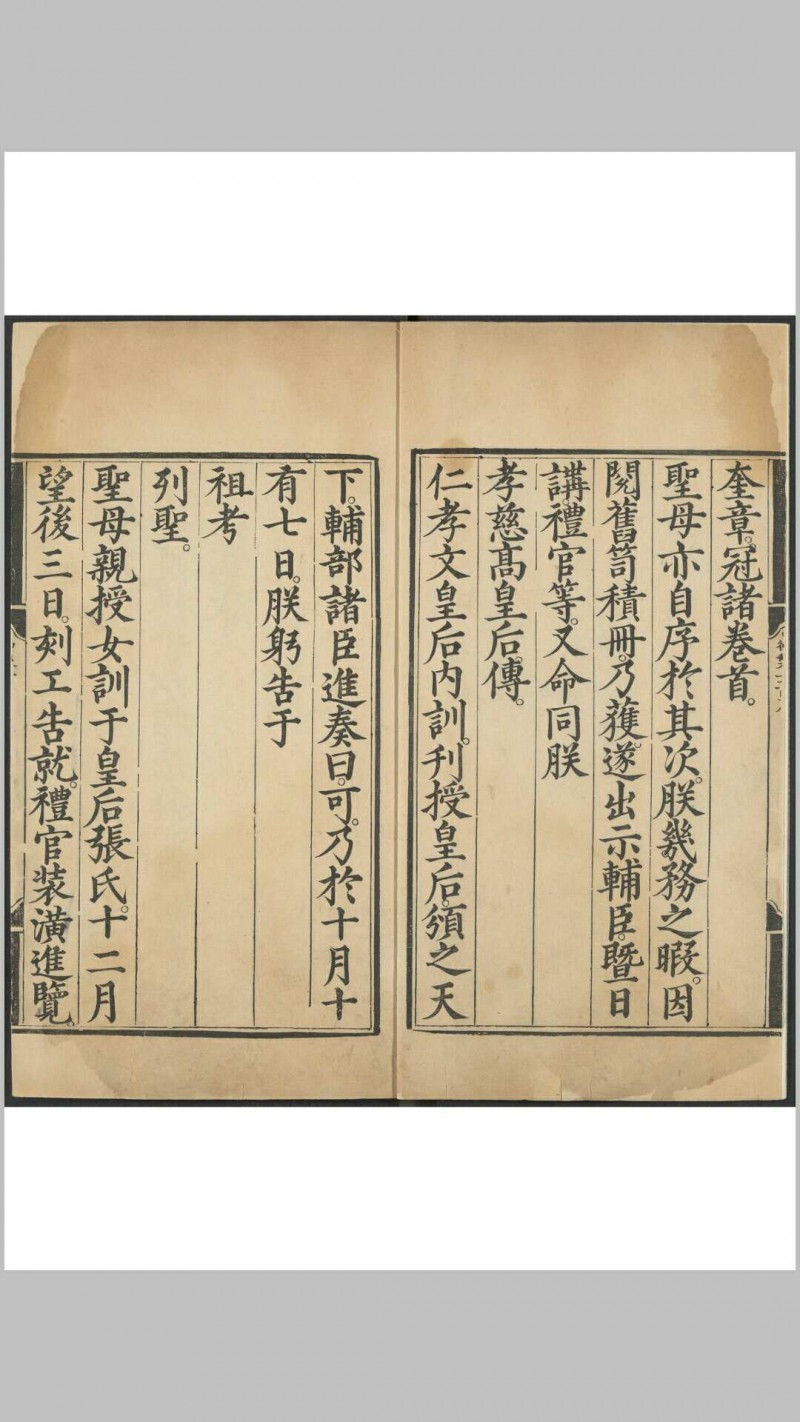 奎章。冠諸卷首。
聖母亦自序於其次。朕幾務之暇。因
閱舊笥積冊。乃獲。遂出示輔臣。暨日
講禮官等。又命同朕
孝慈高皇后傳。
仁孝文皇后内訓。刊授皇后。頒之天
下。輔部諸臣進奏曰。可。乃於十月十
有七日。朕躬告于
祖考
列聖。
聖母親授女訓于皇后張氏。十二月
望後三日。刻工告就。禮官装潢進覽。